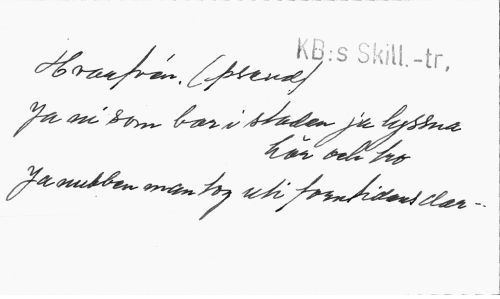 KB:s Skill.-tr,
Hvarifrån. (pseud)
Ja ni som bor i staden ja lyssna
hör och tro
Ja nubben man tog uti forntidens dar--